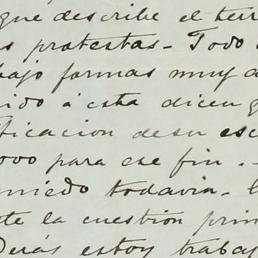 que describe el terr
s protestas - Todo
bajo formas muy d
ido á esta dicen q
ficacion de su esc
ovo para ese fin. -
miedo todavia. -
te la cuestión prin
Detrás estoy trabaj